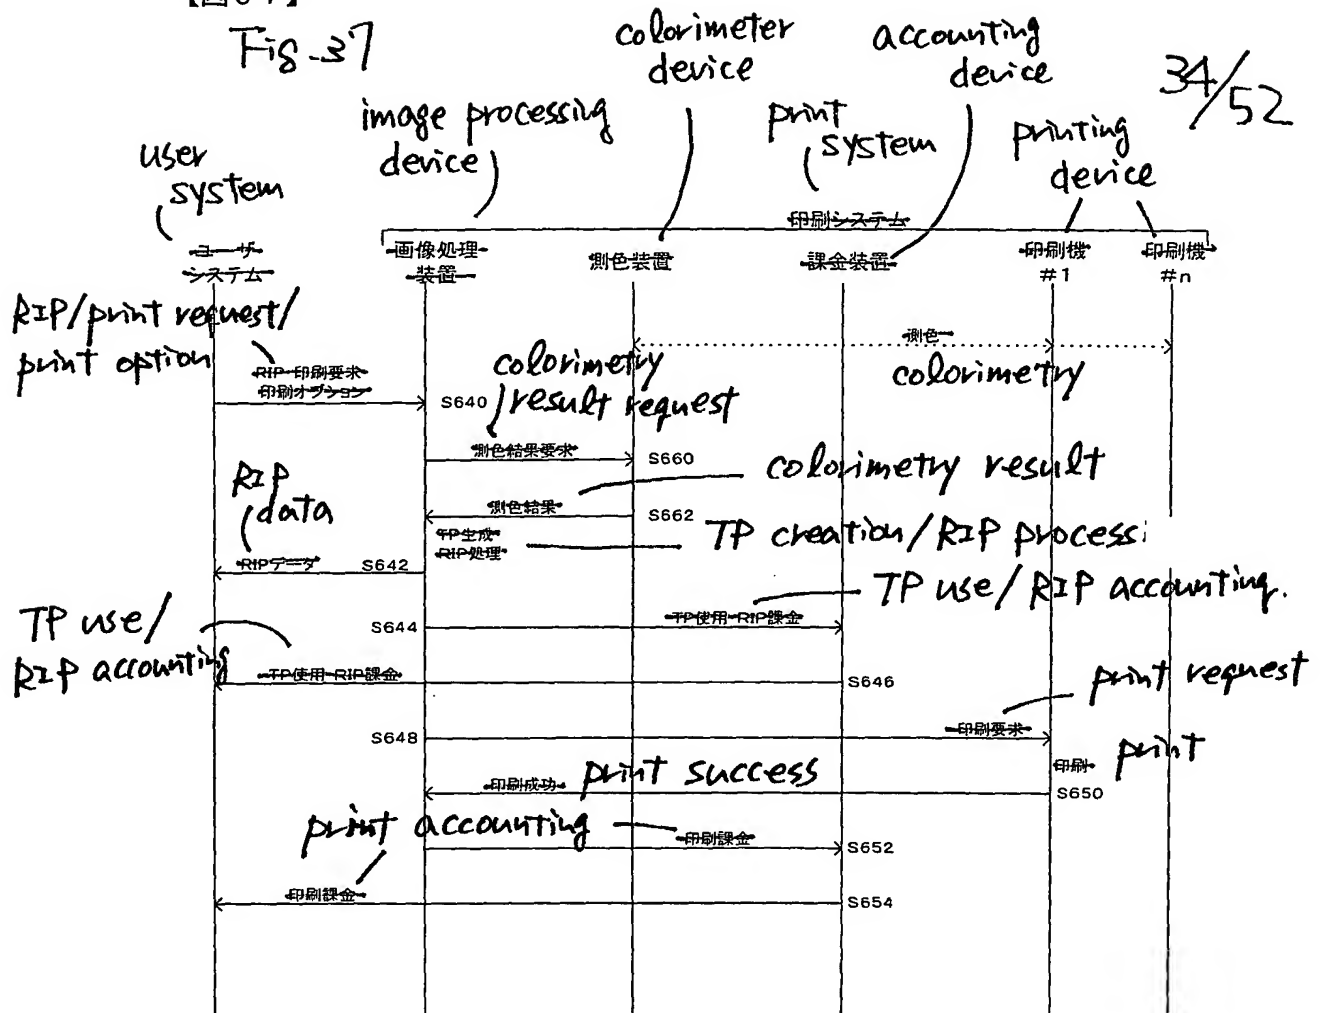 Fig-37
colorimeter
device
accounting
device
34/52
image processing
device
print
system
printing
device
user
system
印刷システム
ユーザ
システム
画像処理
装置
測色装置
課金装置
印刷機
#1
印刷機
#n
RIP/print request/
print option
RIP 印刷要求
印刷オプション
S640
測色
colorimetry
colorimetry
result request
測色結果要求
S660
colorimetry result
RIP
data
測色結果
S662
TP生成
RIP処理
TP creation/RIP process
RIPデータ
S642
TP use/RIP accounting.
TP use/
RIP accounting
S644
TP使用 RIP課金
TP使用 RIP課金
S646
print request
S648
印刷要求
印刷
print
印刷成功
print success
S650
print accounting
印刷課金
S652
印刷課金
S654